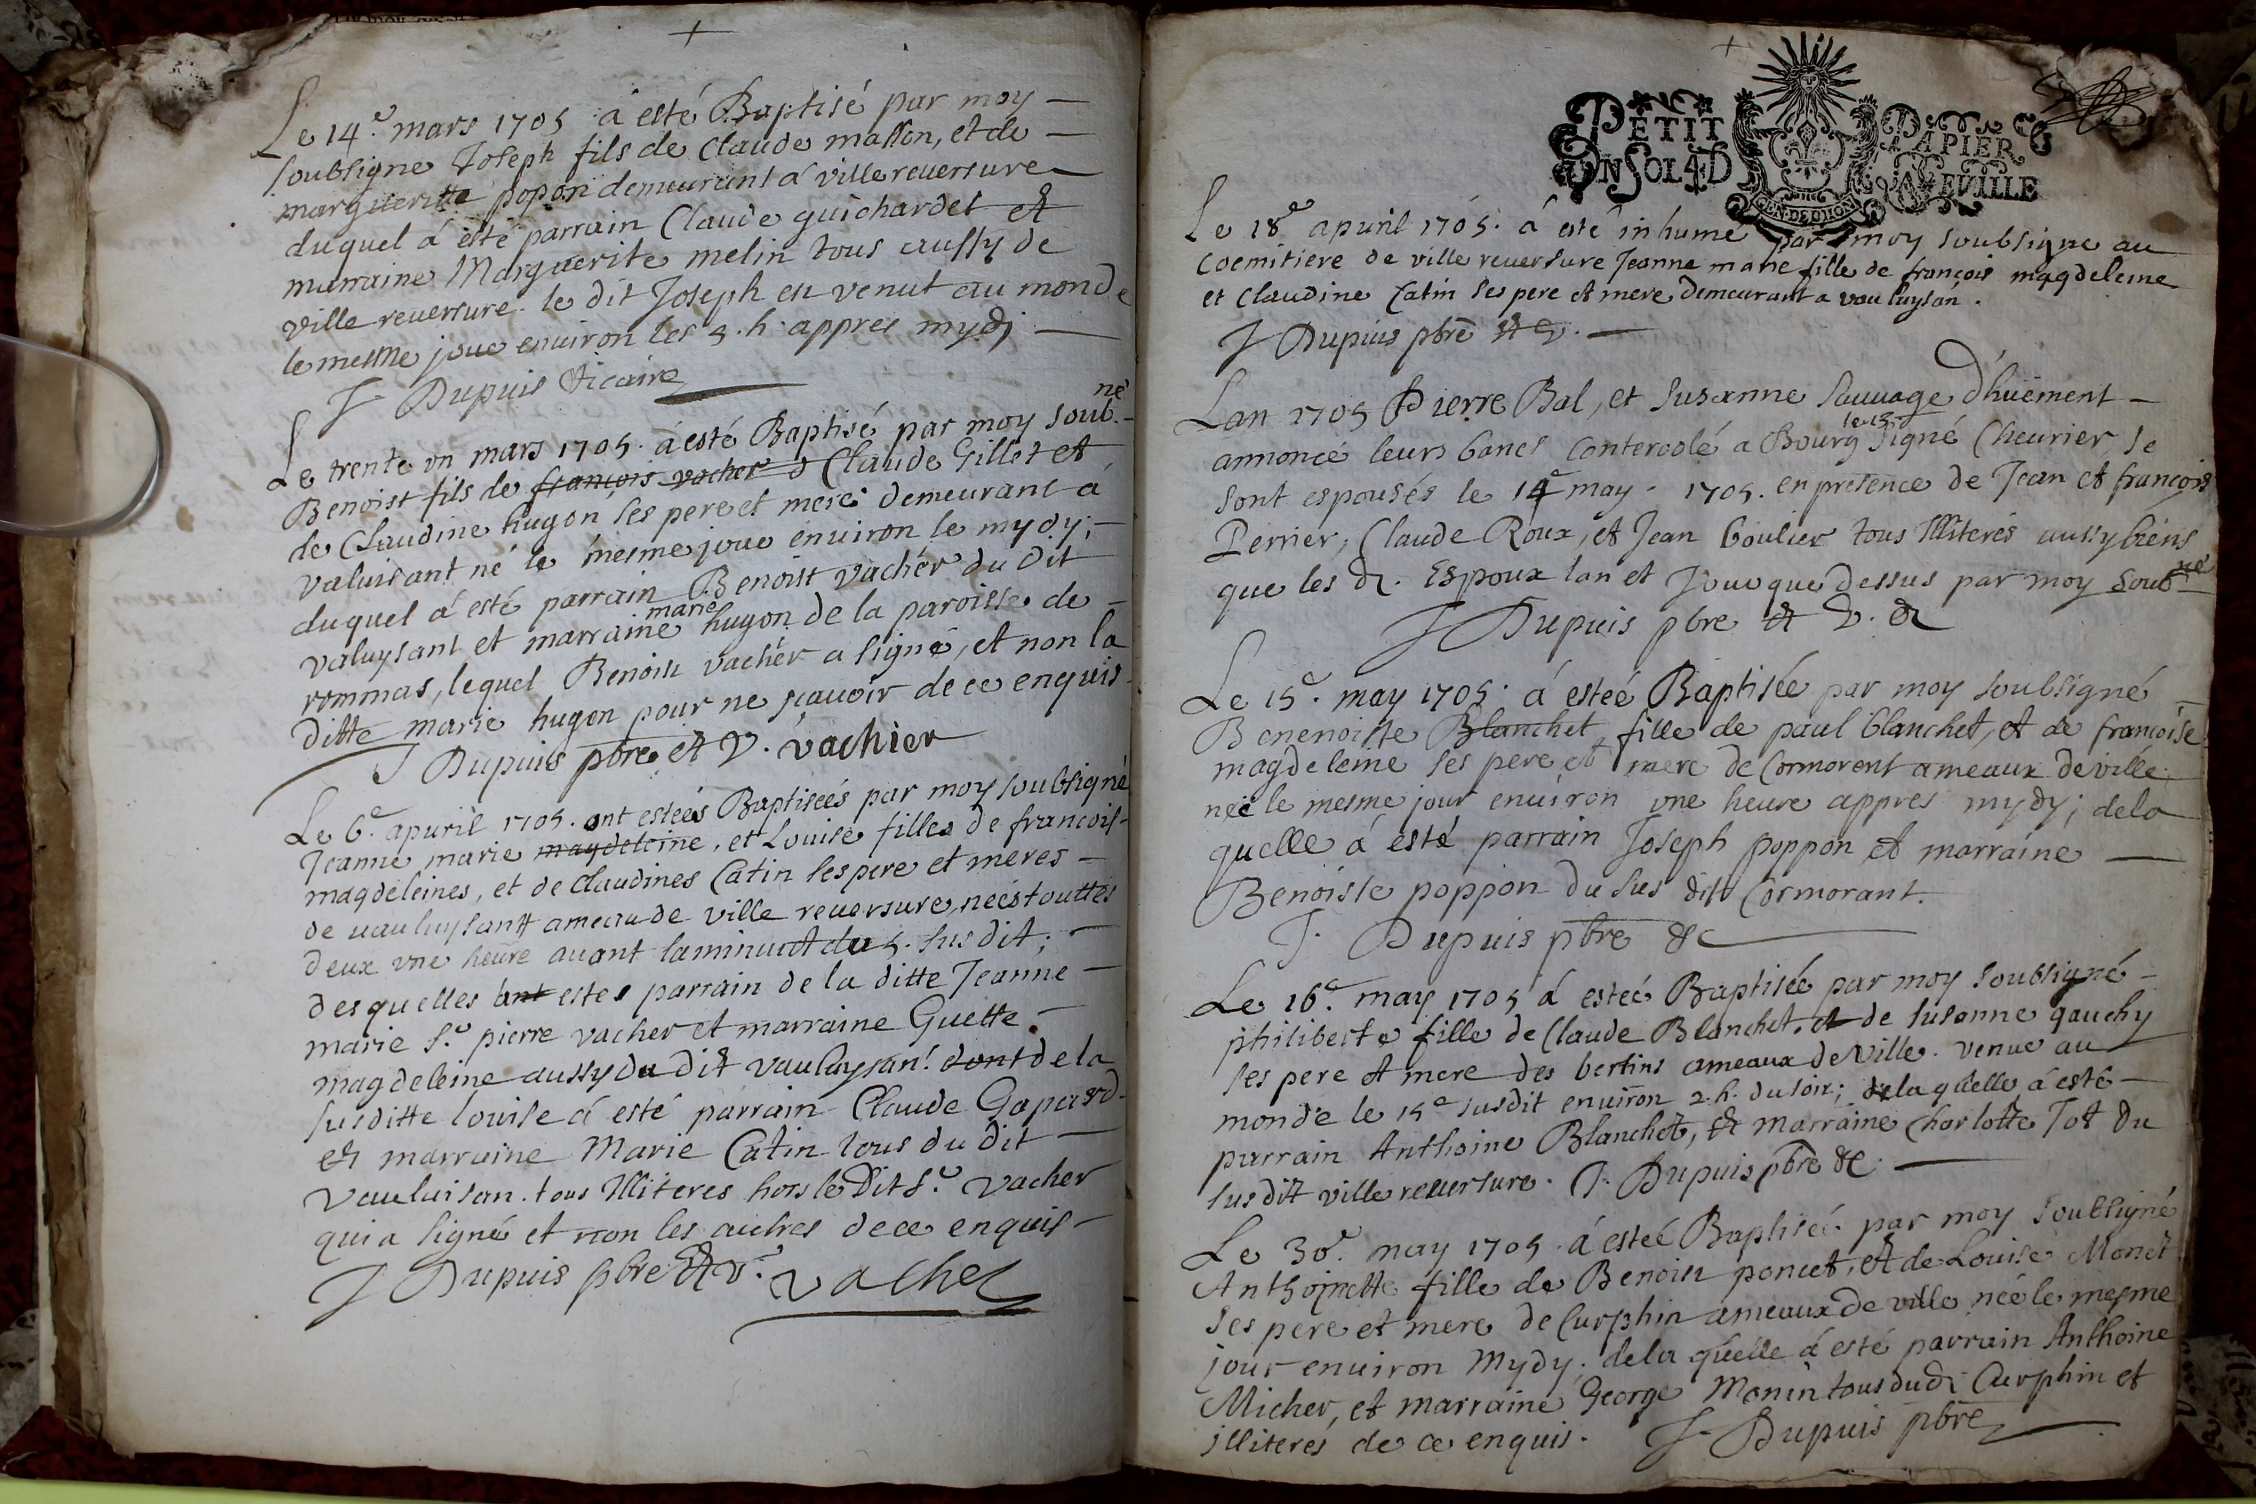 Le 14e. mars 1705 a esté Baptisé par moy
soubsigne Joseph fils de Claude masson, et de
margueritte popon demeurant á ville reversure
duquel á esté parrain Claude guichardet et
marraine Marguerite melin tous aussy de
ville reversure. le dit Joseph est venut au monde
le mesme jour environ les 5. h. appres mydi
J Dupuis vicaire
Le trente un mars 1705. á esté Baptisé par moy soub.né
Benoist fils de françois vacher d Claude Gillet et
de Claudine hugon ses pere et mere demeurant á
valuisant né le mesme jour environ le mydy;
duquel á esté parrain Benoist vachér du dit
valuysant et marraine marie hugon de la paroisse de
rommas, lequel Benoist vachér a signé, et non la
ditte marie hugon pour ne sçavoir de ce enquis
J Dupuis pbre et V. vachier
Le 6e. apuril 1705. ont estéés Baptiséés par moy soubsigné
Jeanne marie magdeleine, et Louise filles de francois
magdeleines, et de Claudines Catin ses pere et meres
de vauluysantt ameau de ville reversure, néés touttes
deux une heure avant la minuit du 5. susdit;
desquelles ont estes parrain de la ditte Jeanne
marie Sr. pierre vacher et marraine Guette
magdeleine aussy du dit vauluysan! dont de la
susditte louise á esté parrain Claude Gapard
et marraine Marie Catin tous du dit
vauluisan. tous Illiteres hors le dit Sr. vacher
qui a signé et non les autres de ce enquis
J Dupuis pbre et v. vacher
PETIT PAPIER
UN SOL 4 D NEUILLE
GEN. DE DIION
Le 18e apuril 1705. á esté inhumé par moy soubsigne au
coemitiere de ville reversure Jeanne marie fille de françois magdeleine
et Claudine Catin ses pere et mere demeurant a vauluysan.
J Dupuis pbre et v.
Lan 1705 Pierre Bal, et Susanne Sauvage d'huëment
annoncé leurs bancs conterolé a Bourg le 13 signé Cheurier, se
sont espousés le 14e may. 1705. en presence de Jean et françois
Perrier, Claude Roux, et Jean boulier tous Illiterés aussybiens
que les d. Espoux lan et Jour que dessus par moy soub.né
J Dupuis pbre et v. &
Le 15e. may 1705. á esteé Baptisée par moy soubsigné
Benenoiste Blanchet fille de paul blanchet, et de françoise
magdeleine ses pere et mere de Cormorent ameaux de ville
néé le mesme jour environ une heure appres mydy; dela
quelle á esté parrain Joseph poppon et marraine
Benoiste poppon du sus dit Cormorant.
J. Dupuis pbre &c
Le 16e. may 1705 á esteé Baptisée par moy soubsigné
philiberte fille de Claude Blanchet, et de susanne gauchy
ses pere et mere des bertins ameaux de Ville. venue au
monde le 15e susdit environ 2. h. du soir; de la quelle á esté
parrain Anthoine Blanchet, et marraine Charlotte Jot du
susdit ville reversure. J. Dupuis pbre &c.
Le 30e. may 1705. á esteé Baptiseé par moy soubsigné
Anthoinette fille de Benoist poncet, et de Louise Monet
ses pere et mere de Curphin ameaux de ville néé le mesme
jour environ Mydy. de la quelle á esté parrain Anthoine
Micher, et marraine George Monin tous dudi Curphin et
illiterés de ce enquis. J. Dupuis pbre